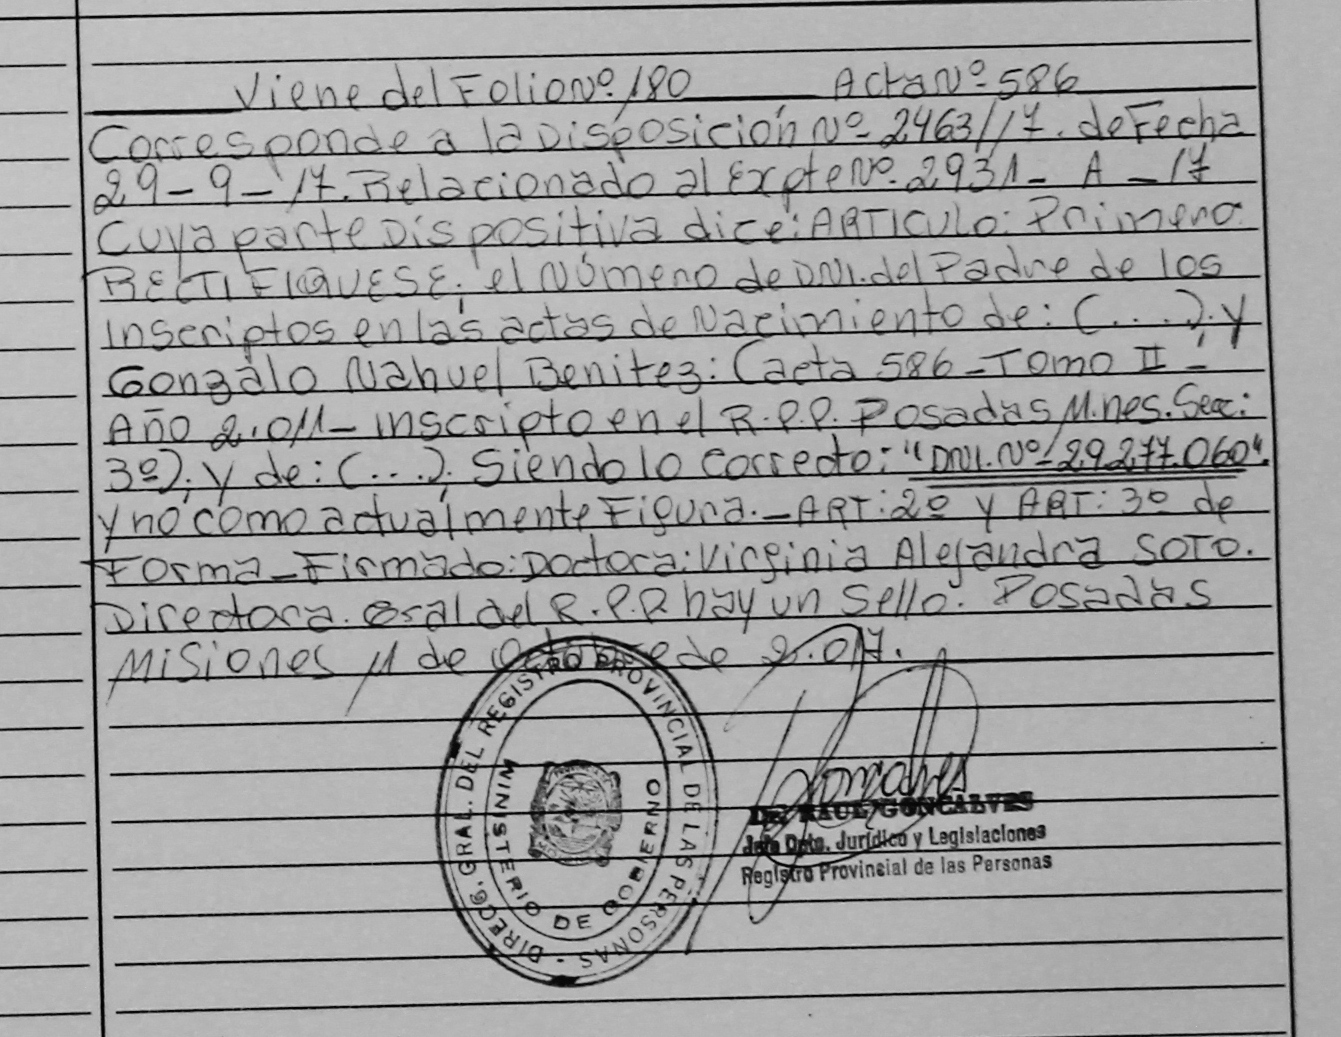 Viene del Folio Nº 180 Acta Nº 586
Corresponde a la Disposición Nº 2463/17. de Fecha
29-9-17. Relacionado al Expte Nº 2931- A -17
Cuya parte Dispositiva dice: ARTICULO: Primero:
RECTIFIQUESE; el Número de DNI. del Padre de los
Inscriptos en las actas de Nacimiento de: (....); y
Gonzalo Nahuel Benitez: (acta 586 - Tomo II -
Año 2.011- inscripto en el R.P.P. Posadas Mnes. Secc:
3º); y de: (...); Siendo lo correcto: "DNI. Nº 29.277.060"
y no como actualmente Figura.- ART: 2º y ART: 3º de
Forma - Firmado: Doctora: Virginia Alejandra SOTO.
Directora. Gral del R.P.P hay un Sello. Posadas
Misiones 11 de Octubre de 2.017.
DIRECG. GRAL. DEL REGISTRO PROVINCIAL DE LAS PERSONAS -
MINISTERIO DE GOBIERNO
Goncalves
Dr. RAUL GONCALVES
Jefe Dpto. Jurídico y Legislaciones
Registro Provincial de las Personas